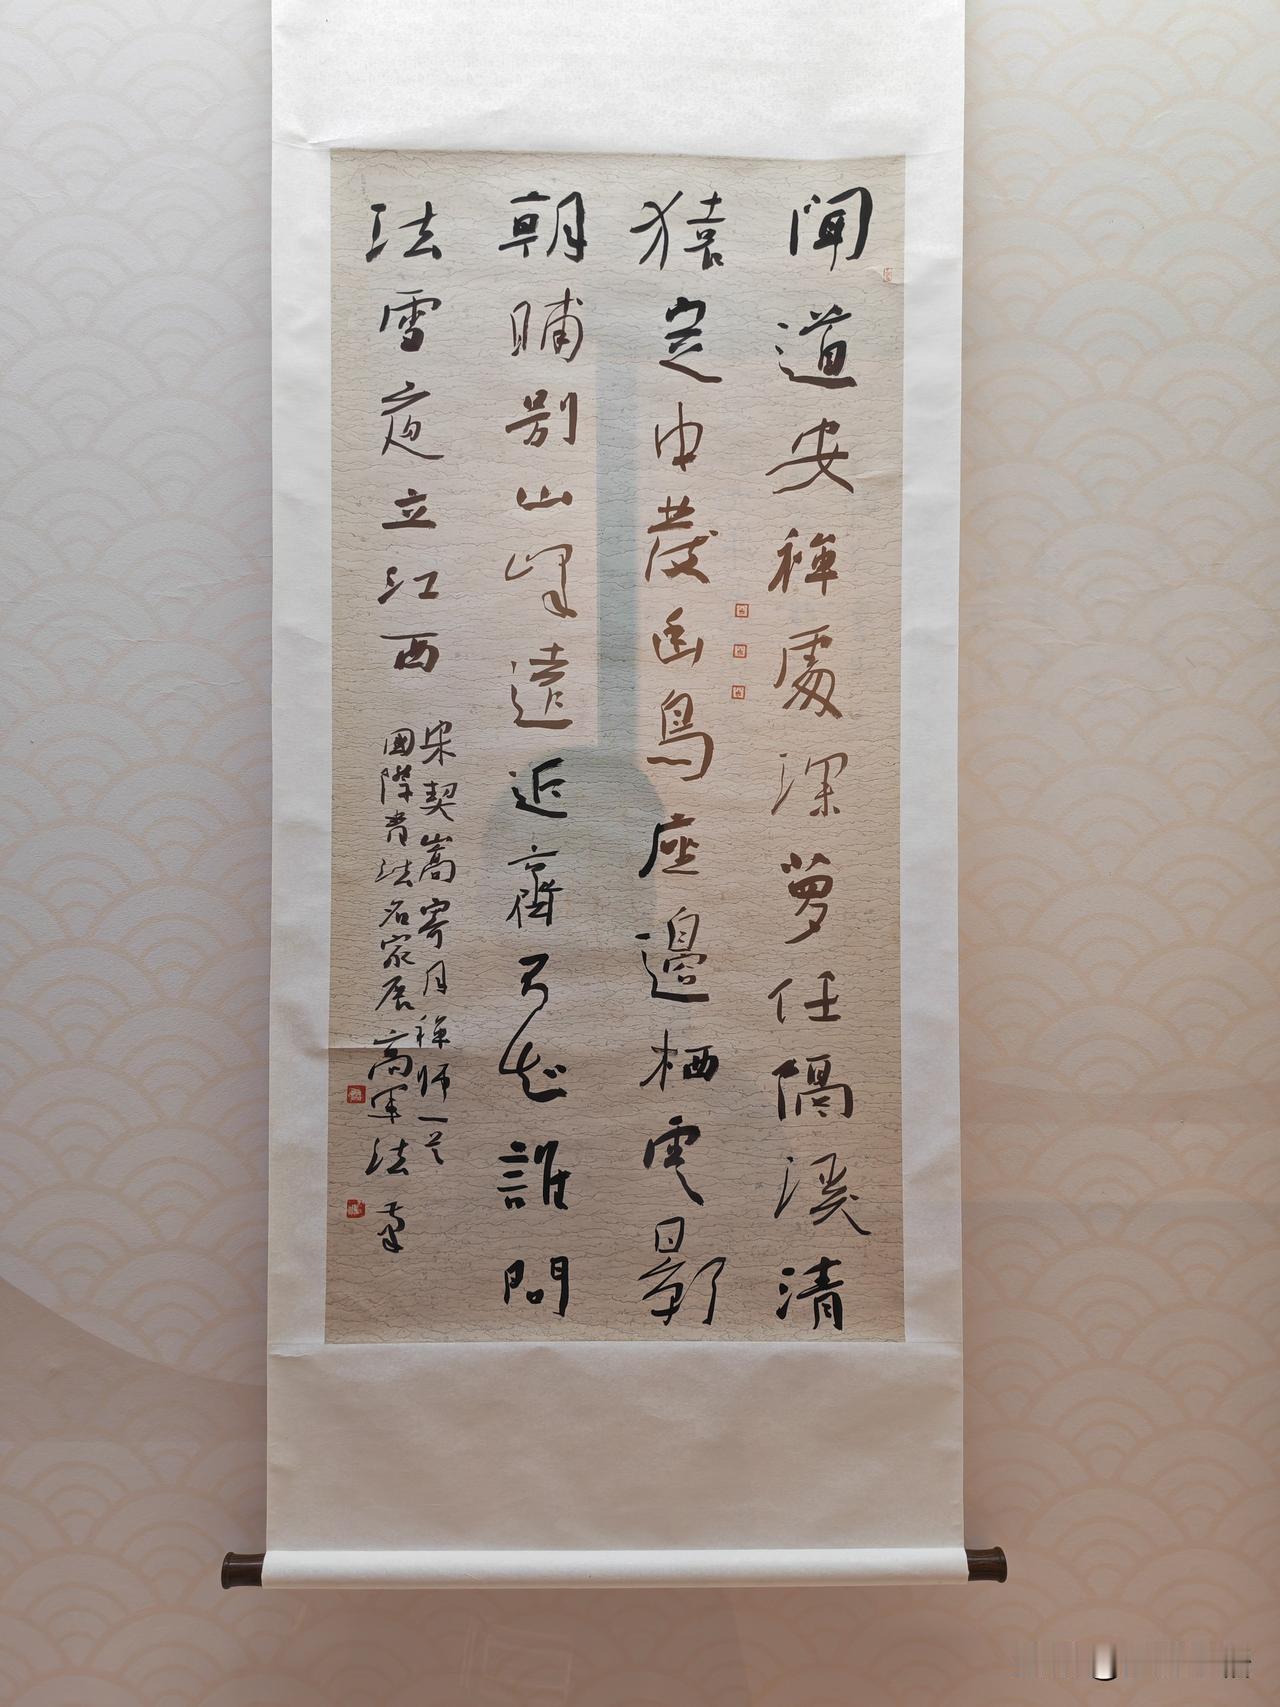 闻道安禅处深萝任隔溪清
猿定中发幽鸟座边栖云影
朝晡别山峰远近齐不知谁问
法雪夜立江西
宋契嵩寄月禅师一首
国际书法名家展高军法书